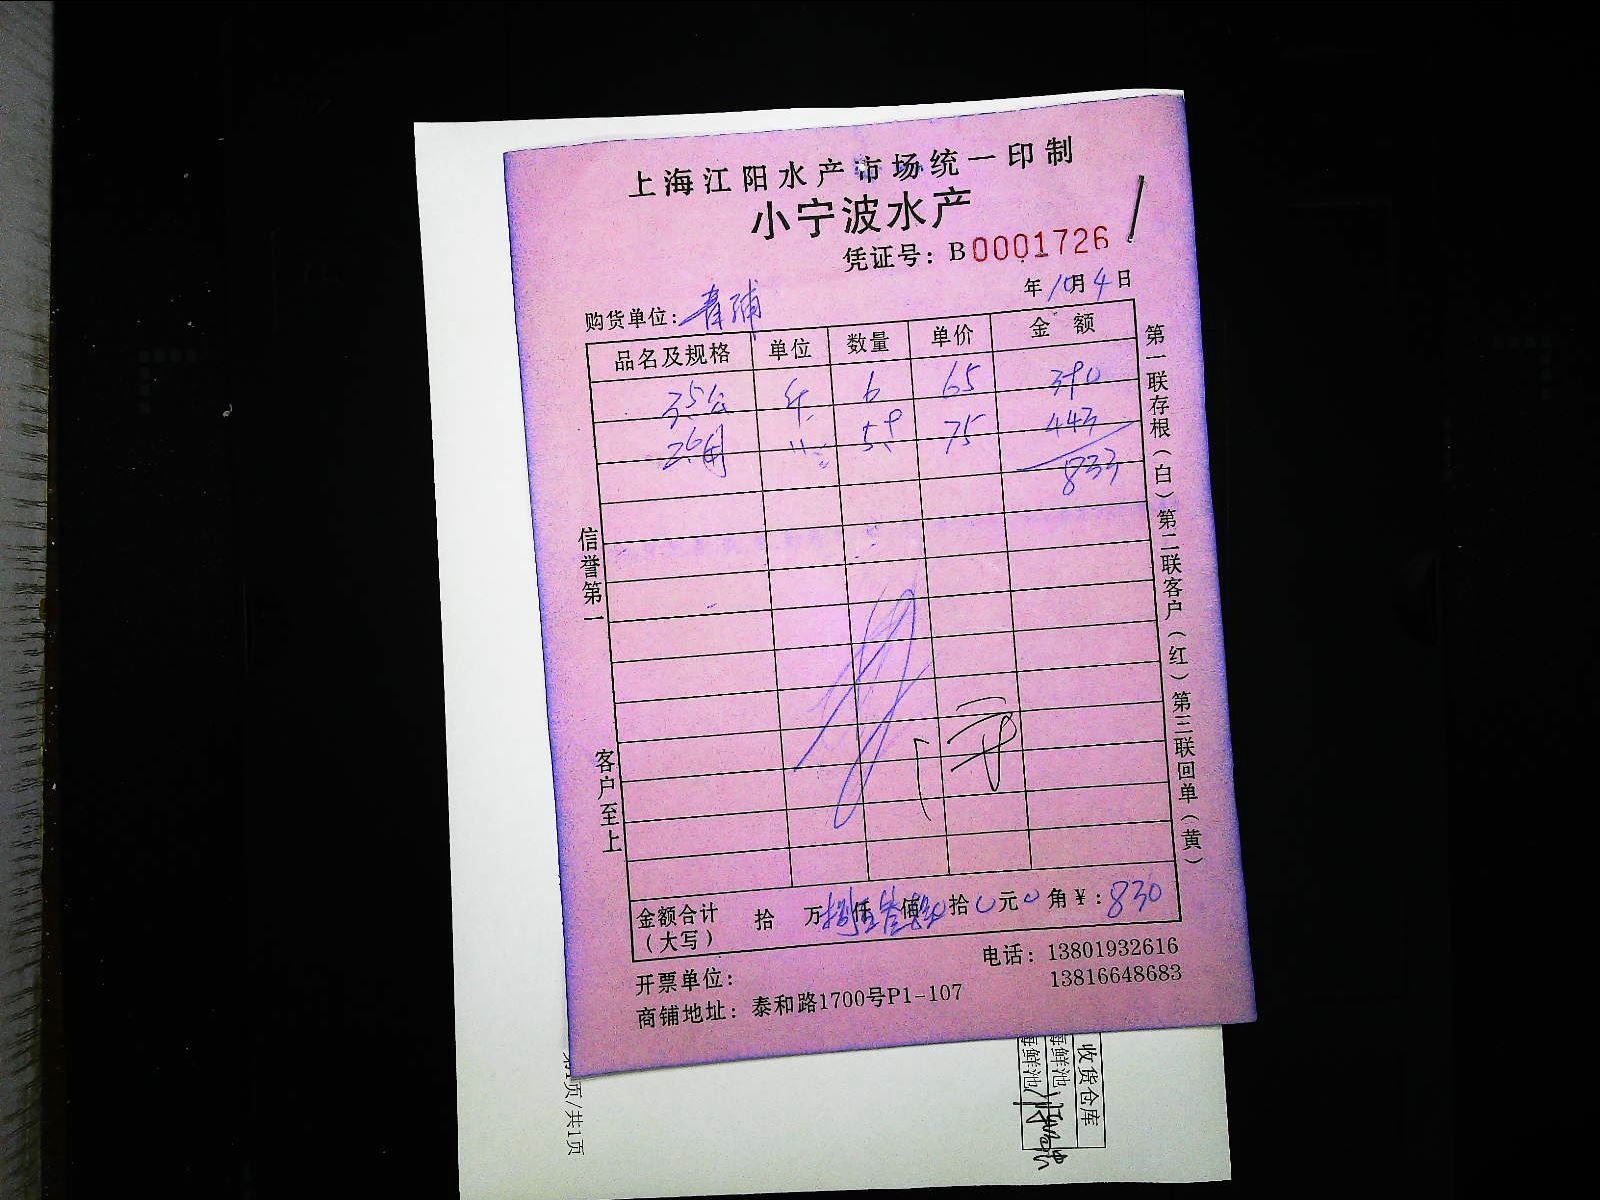 上海江阳水产市场统一印制
小宁波水产
凭证号：B0001726
年10月4日
购货单位：青浦
品名及规格 单位 数量 单价 金额
35公 斤 6 65 390
26母 〃 59 75 443
833
信誉第一
客户至上
第一联存根（白）第二联客户（红）第三联回单（黄）
金额合计（大写） 拾 万 仟 佰 拾0元0角¥：830
电话：13801932616
13816648683
开票单位：
商铺地址：泰和路1700号P1-107
收货仓库
海鲜池
海鲜池
页/共1页